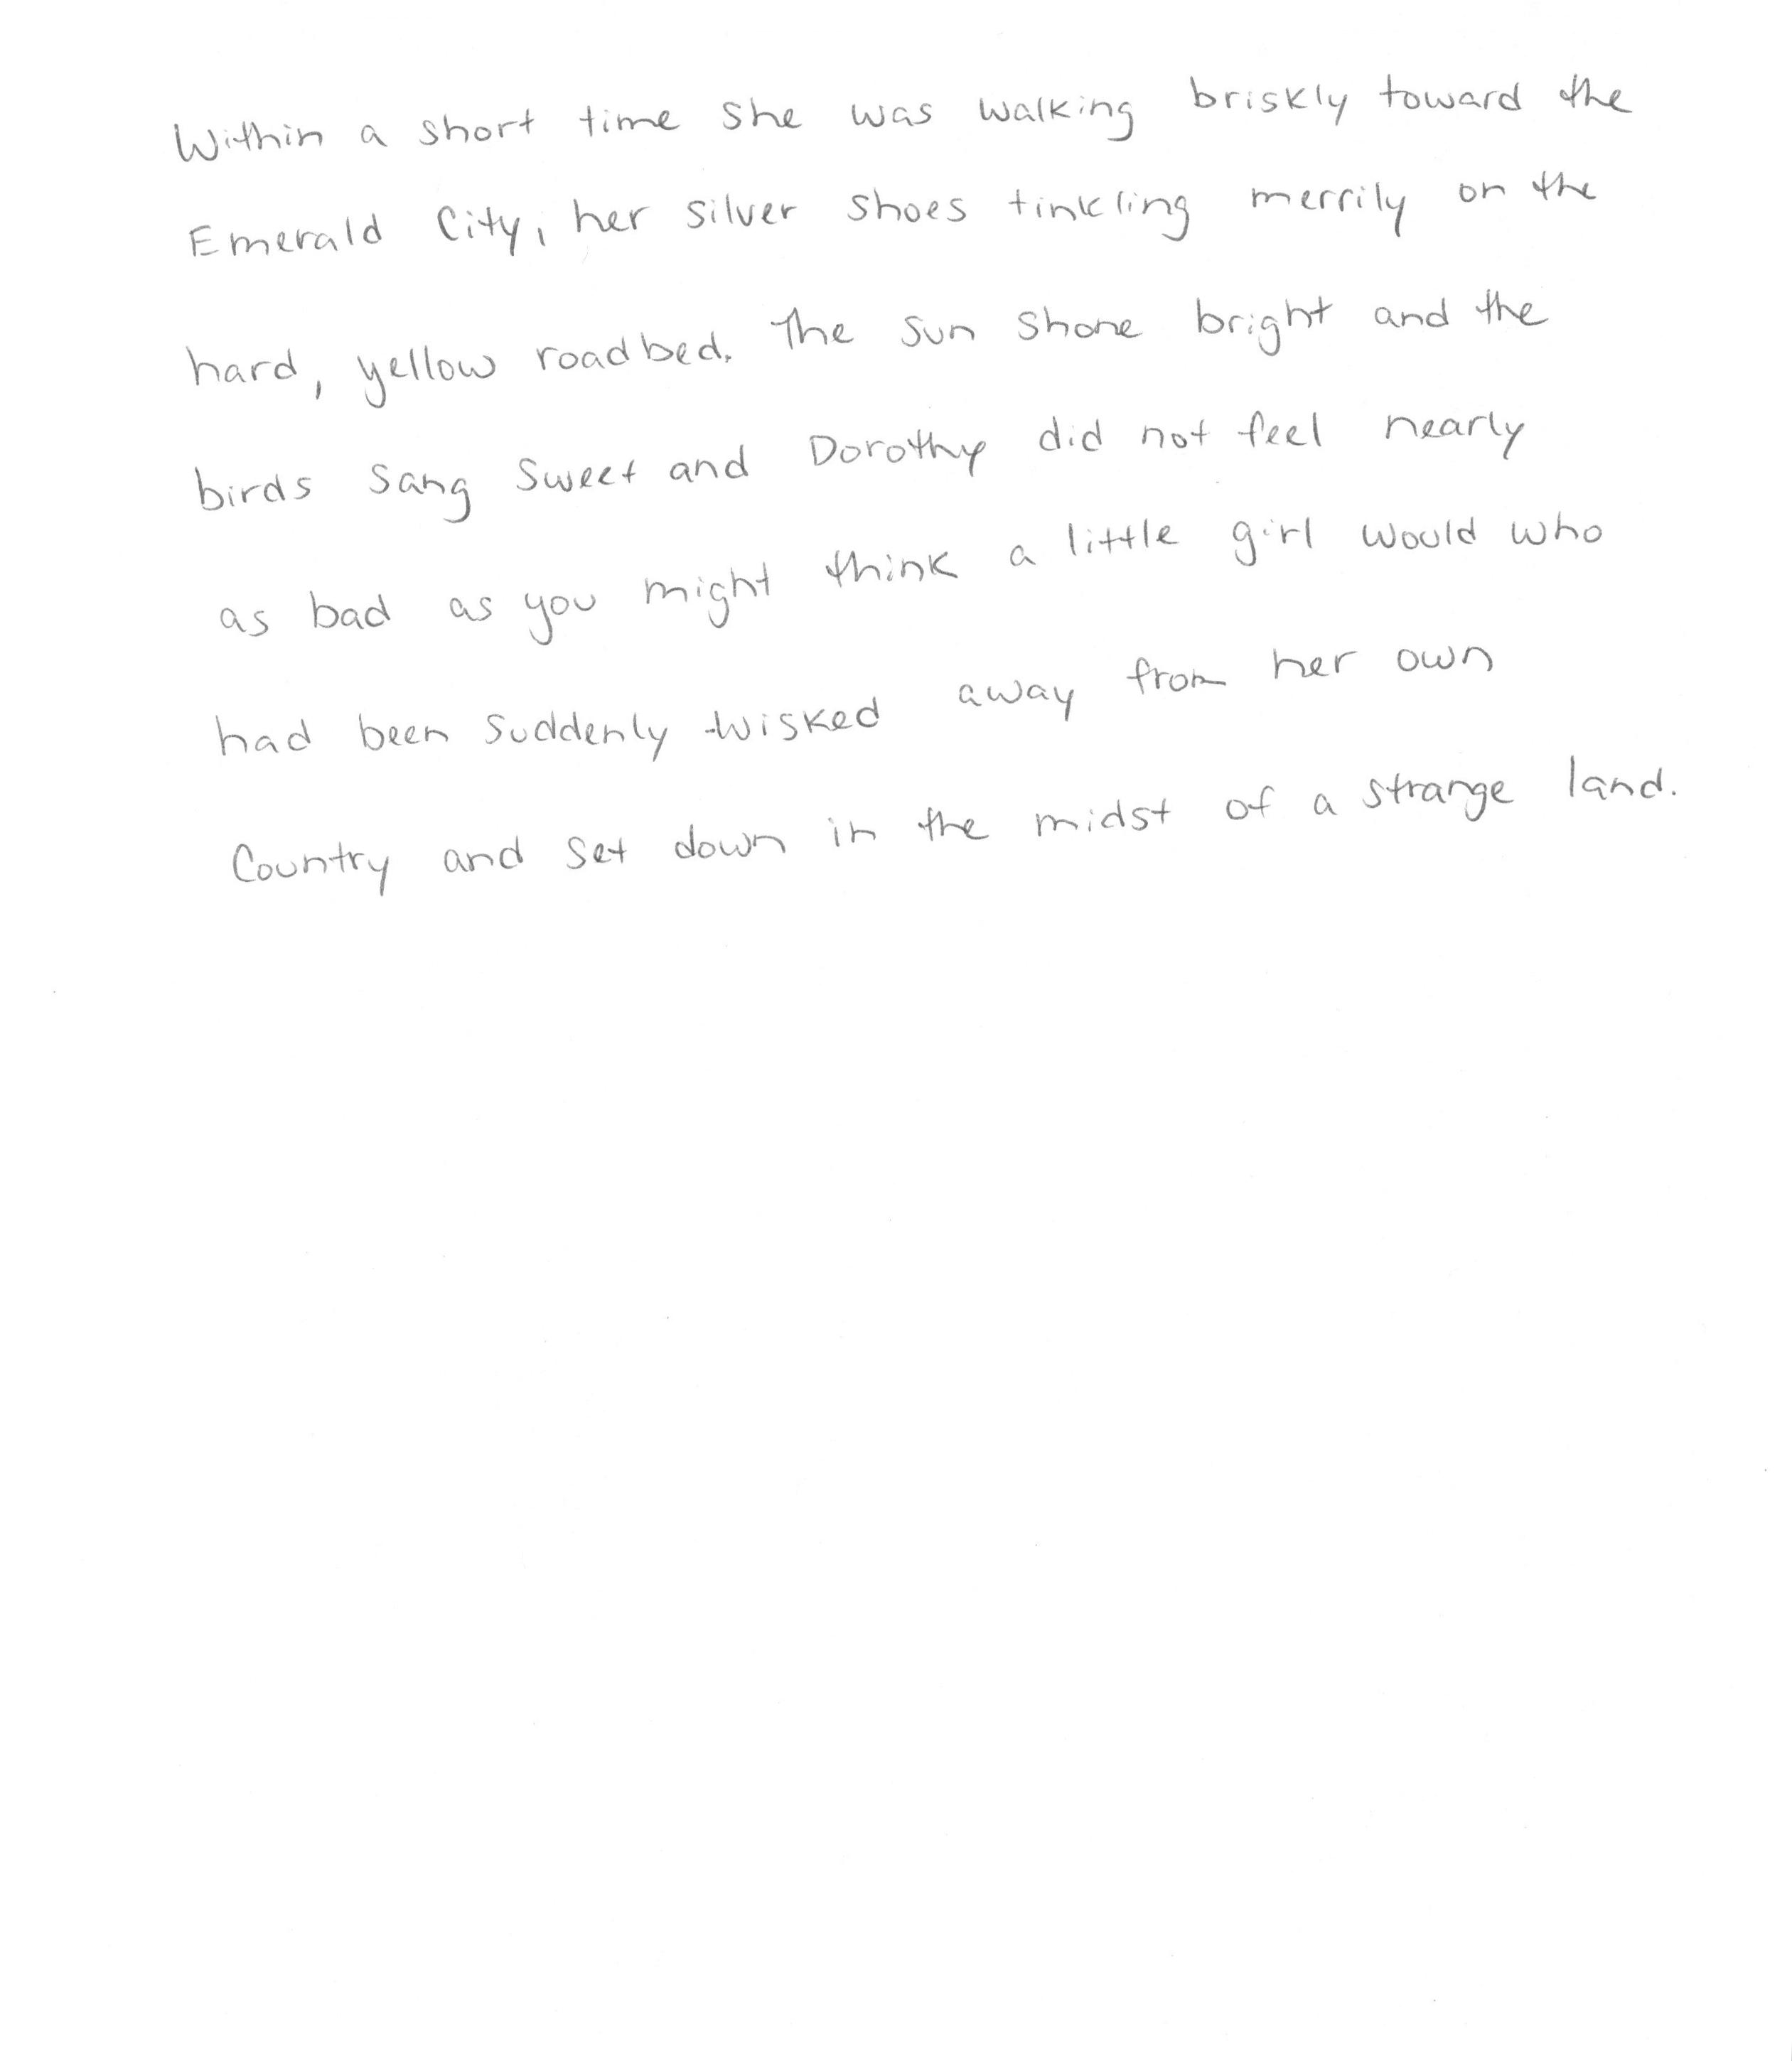 Within a short time she was walking briskly toward the
Emerald City, her silver shoes tinkling merrily on the
hard, yellow roadbed. The sun shone bright and the
birds sang sweet and Dorothy did not feel nearly
as bad as you might think a little girl would who
had been suddenly wisked away from her own
Country and set down in the midst of a strange land.